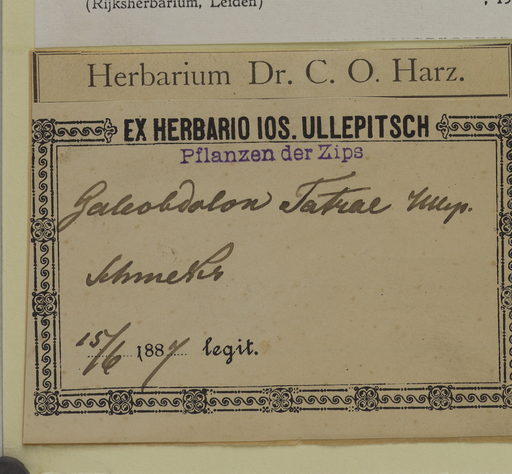 (Rijksherbarium, Leiden)
Herbarium Dr. C. O. Harz.
EX HERBARIO IOS. ULLEPITSCH
Pflanzen der Zips
Galeobdolon Tatrae Ullep.
Schmeks
15/6 1887 legit.